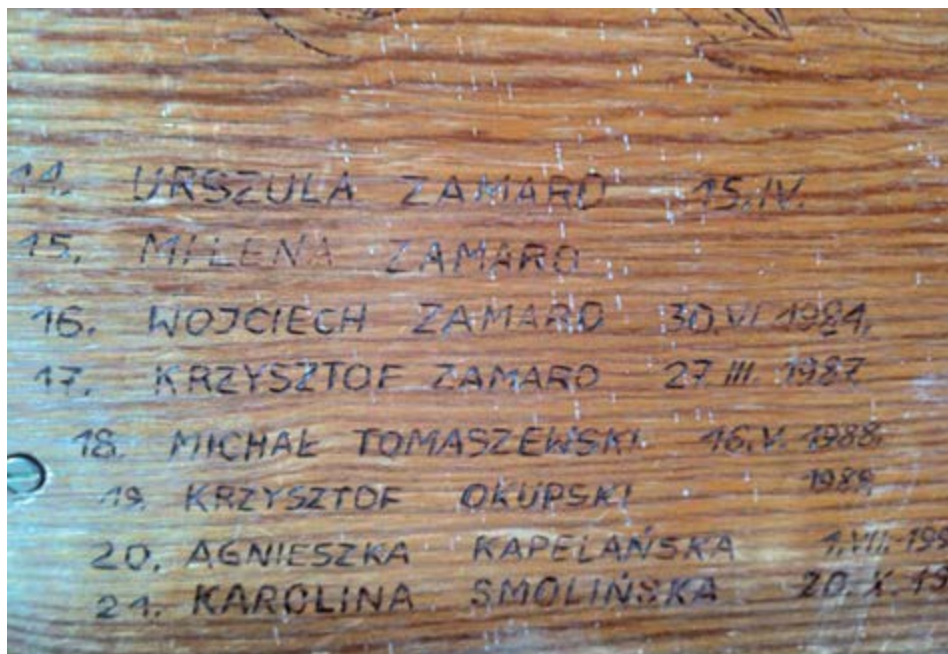 14. URSZULA ZAMARO 15.IV.
15. MILENA ZAMARO
16. WOJCIECH ZAMARO 30.VI 1984.
17. KRZYSZTOF ZAMARO 27 III. 1987
18. MICHAŁ TOMASZEWSKI 16.V. 1988.
19. KRZYSZTOF OKUPSKI 1989
20. AGNIESZKA KAPELAŃSKA 1.VII.
21. KAROLINA SMOLIŃSKA 20.X.